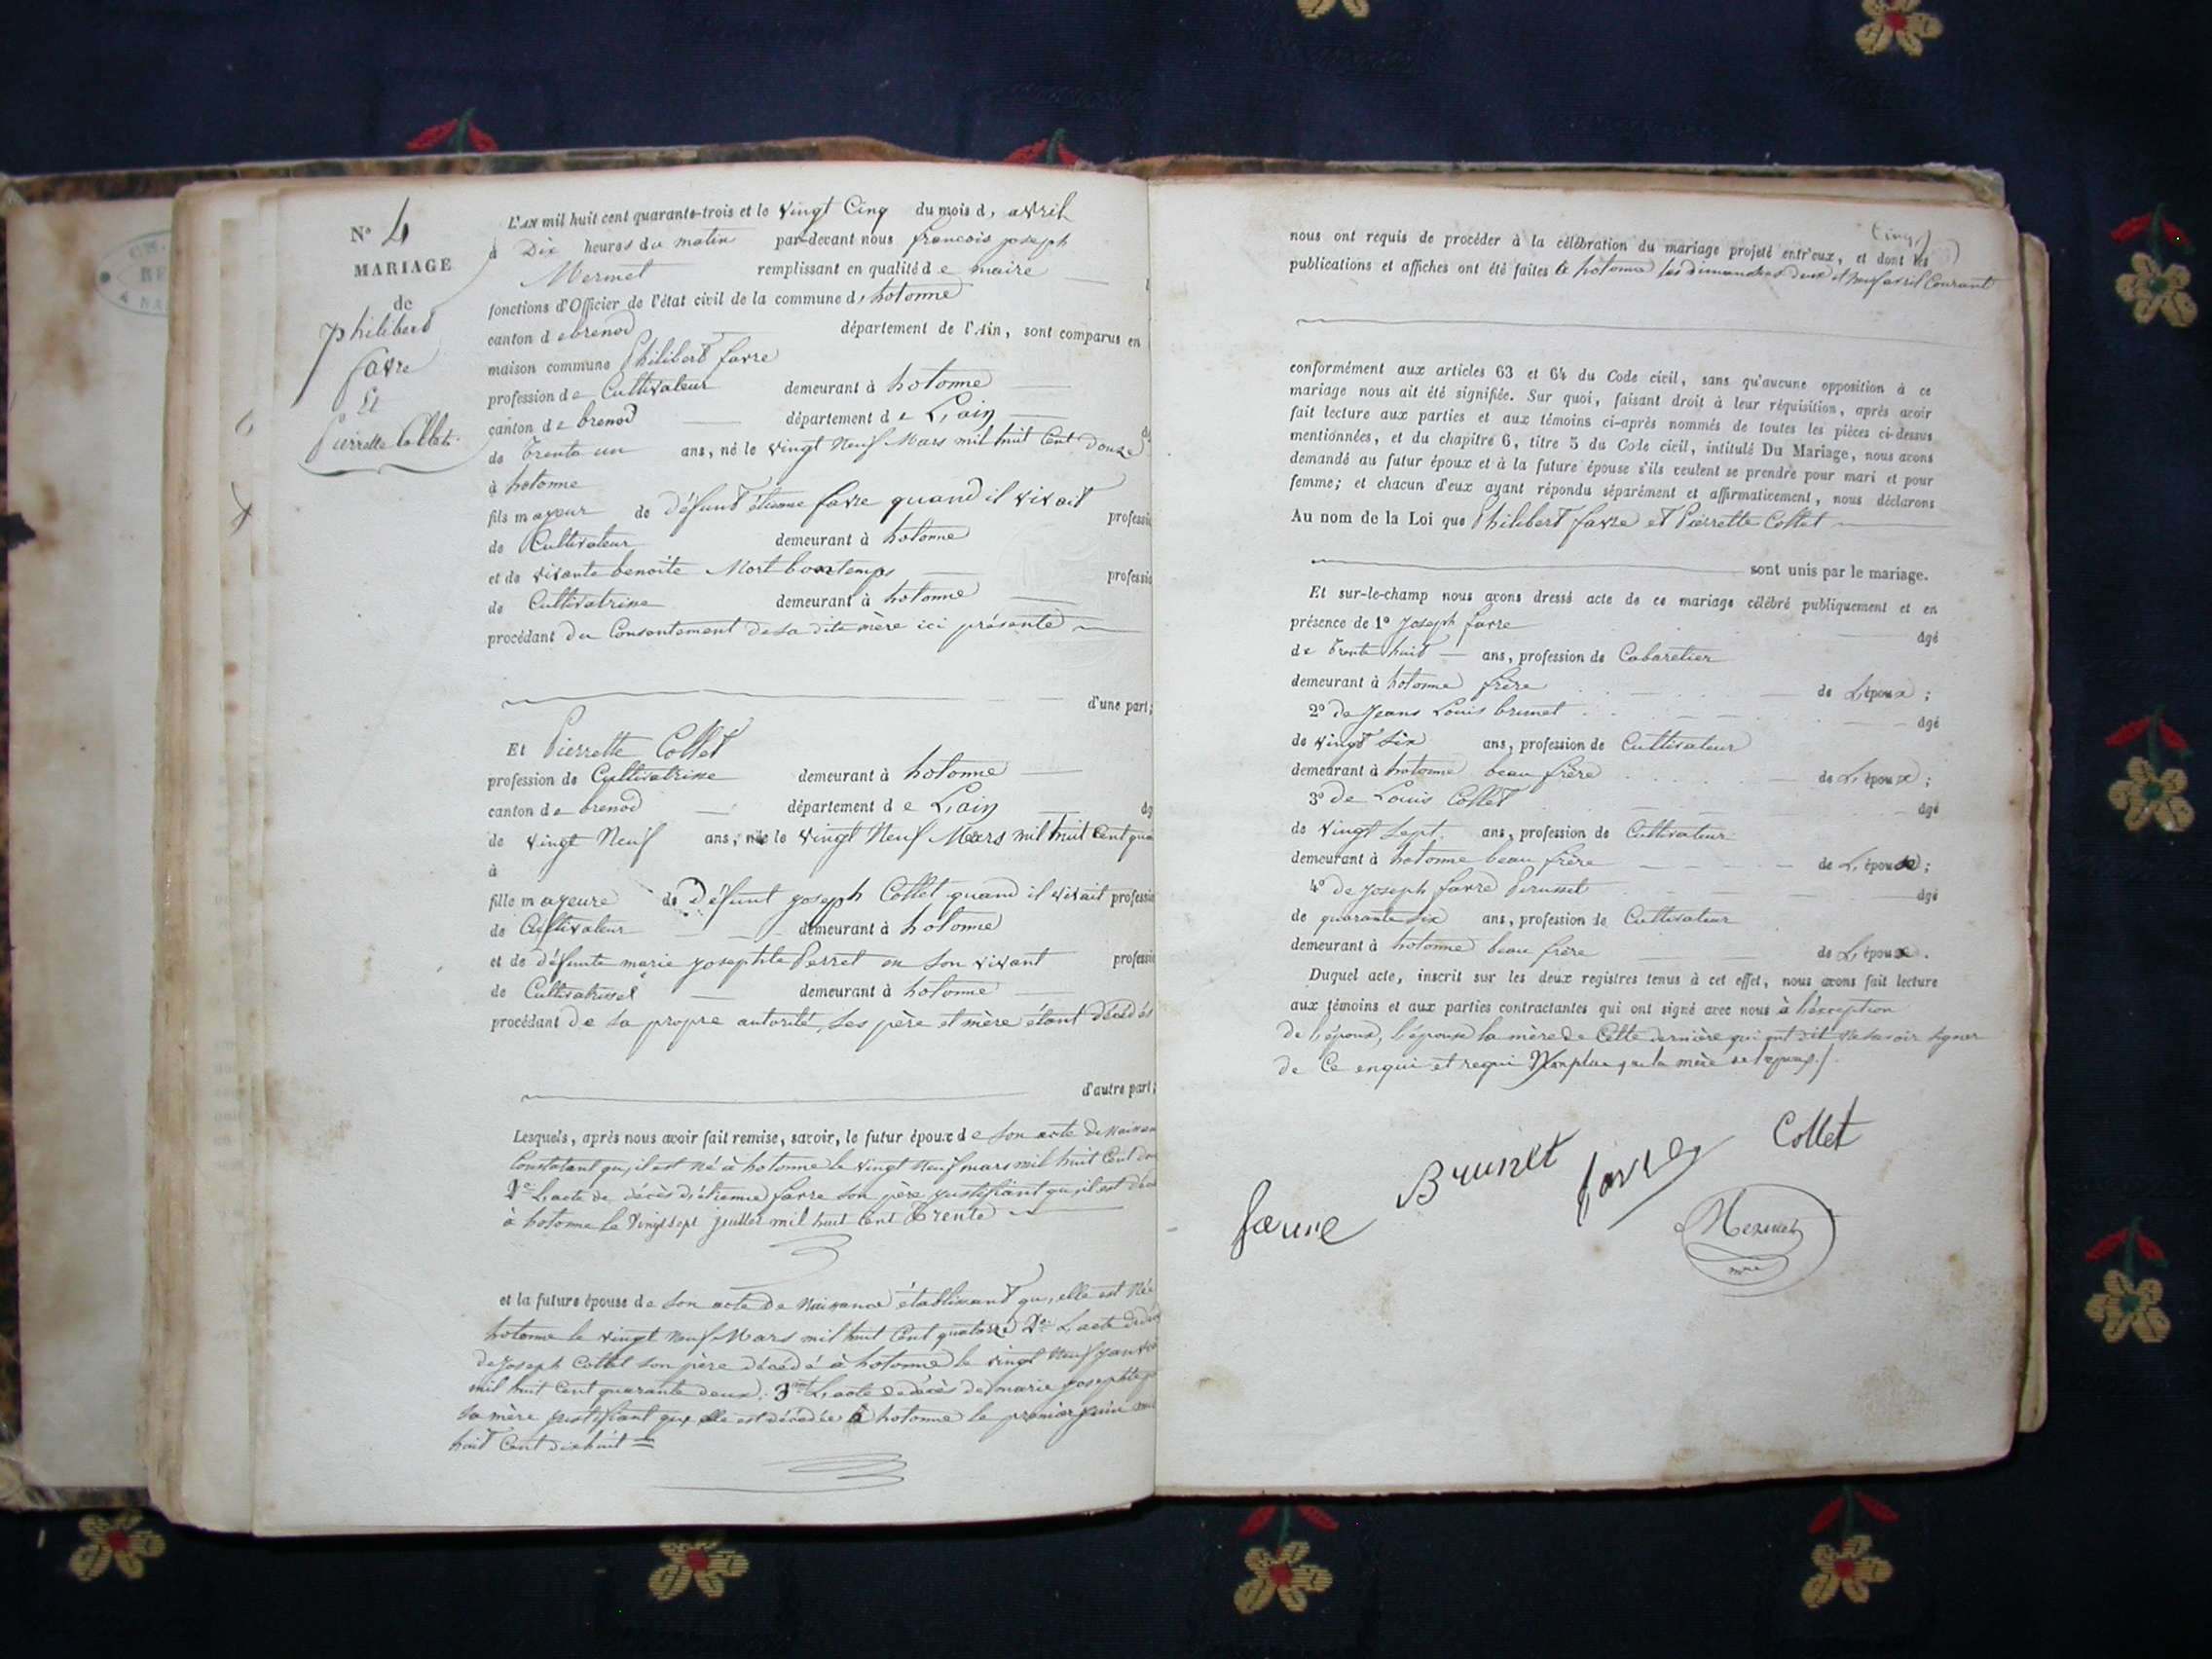 N° 4
MARIAGE
de
philibert
favre
Et
Pierrette Collet
L'AN mil huit cent quarante-trois et le vingt Cinq du mois d' avril
à Dix heures du matin par-devant nous francois joseph
Mermet remplissant en qualité de maire
fonctions d'Officier de l'état civil de la commune d' hotonne
canton de brenod département de l'Ain, sont comparus en
maison commune Philibert favre
profession de Cultivateur demeurant à hotonne
canton de brenod département de L'ain
de trente un ans, né le vingt Neuf Mars mil huit Cent Douze
à hotonne
fils mayeur de défunt étienne favre quand il vivait professi
de Cultivateur demeurant à hotonne
et de vivante benoite Mort bontemps professi
de Cultivatrise demeurant à hotonne
procédant du Consentement de sa dite mère ici présente
d'une part;
Et Pierrette Collet
profession de Cultivatrise demeurant à hotonne
canton de brenod département de L'ain âg
de vingt Neuf ans, née le vingt Neuf Mars mil huit Cent qua
à
fille mayeure de Défunt joseph Collet quand il vivait professi
de Cultivateur demeurant à hotonne
et de défunte marie josephte Perret en son vivant professi
de demeurant à hotonne
procédant de sa propre autorité, ses père et mère étant décédés
d'autre part;
Lesquels, après nous avoir fait remise, savoir, le futur époux de son acte de naissan
Constatant qu'il est né à hotonne le vingt neuf mars mil huit Cent do
2° L'acte de décès d'étienne favre son père justifiant qu'il est déc
à hotonne le vingt sept juillet mil huit Cent trente
et la future épouse de son acte de naissance établissant qu'elle est née
hotonne le vingt neuf Mars mil huit Cent quatorze 2° L'acte de
de joseph Collet son père décédé à hotonne le vingt neuf janvi
mil huit Cent quarante deux. 3° L'acte de décès de marie josephte
sa mère justifiant qu'elle est décédée à hotonne le premier juin mil
huit Cent dixhuit
nous ont requis de procéder à la célébration du mariage projeté entr'eux, et dont les
publications et affiches ont été faites à hotonne les dimanches deux et neuf avril Courant
conformément aux articles 63 et 64 du Code civil, sans qu'aucune opposition à ce
mariage nous ait été signifiée. Sur quoi, faisant droit à leur réquisition, après avoir
fait lecture aux parties et aux témoins ci-après nommés de toutes les pièces ci-dessus
mentionnées, et du chapitre 6, titre 5 du Code civil, intitulé Du Mariage, nous avons
demandé au futur époux et à la future épouse s'ils veulent se prendre pour mari et pour
femme; et chacun d'eux ayant répondu séparément et affirmativement, nous déclarons
Au nom de la Loi que Philibert favre et Pierrette Collet
sont unis par le mariage.
Et sur-le-champ nous avons dressé acte de ce mariage célébré publiquement et en
présence de 1° Joseph favre âgé
de trente huit ans, profession de Cabaretier
demeurant à hotonne frère de L'époux;
2° de Jean Louis brunet âgé
de vingt six ans, profession de Cultivateur
demeurant à hotonne beau frère de L'époux;
3° de Louis Collet âgé
de vingt sept ans, profession de Cultivateur
demeurant à hotonne beau frère de L'époux;
4° de joseph favre Perusset âgé
de quarante six ans, profession de Cultivateur
demeurant à hotonne beau frère de L'époux.
Duquel acte, inscrit sur les deux registres tenus à cet effet, nous avons fait lecture
aux témoins et aux parties contractantes qui ont signé avec nous à l'exception
de l'époux, l'épouse la mère de Cette dernière qui ont dit ne savoir signer
de Ce enquis et requi Non plus que la mère de l'époux./.
favre
Brunet
favre
Collet
Mermet
mre